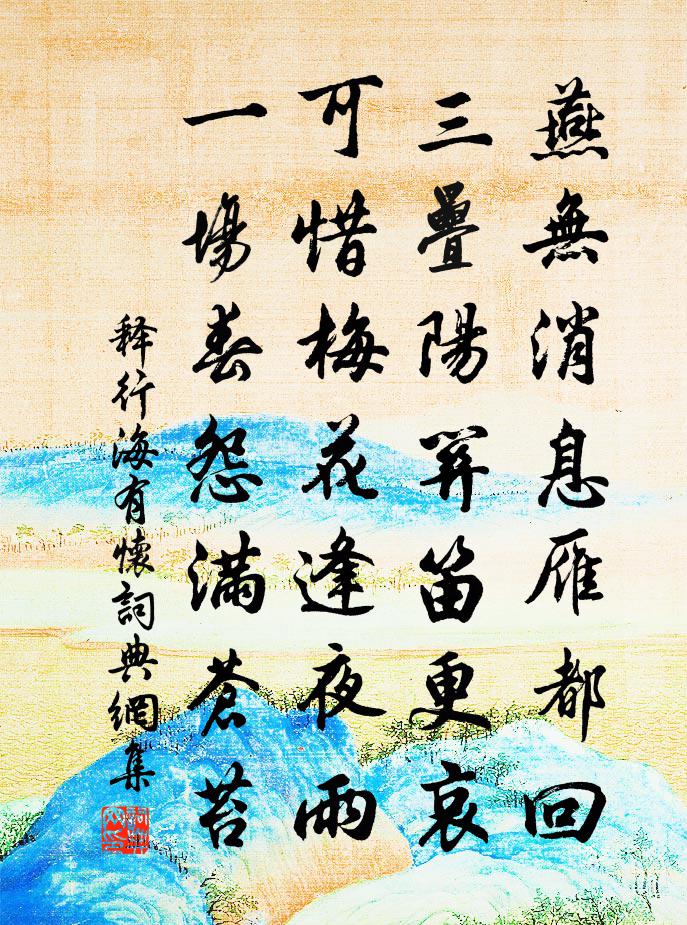 燕無消息雁都回
三疊陽関笛更哀
可惜梅花逢夜雨
一場春怨滿蒼苔
释行海有懷詞典網集